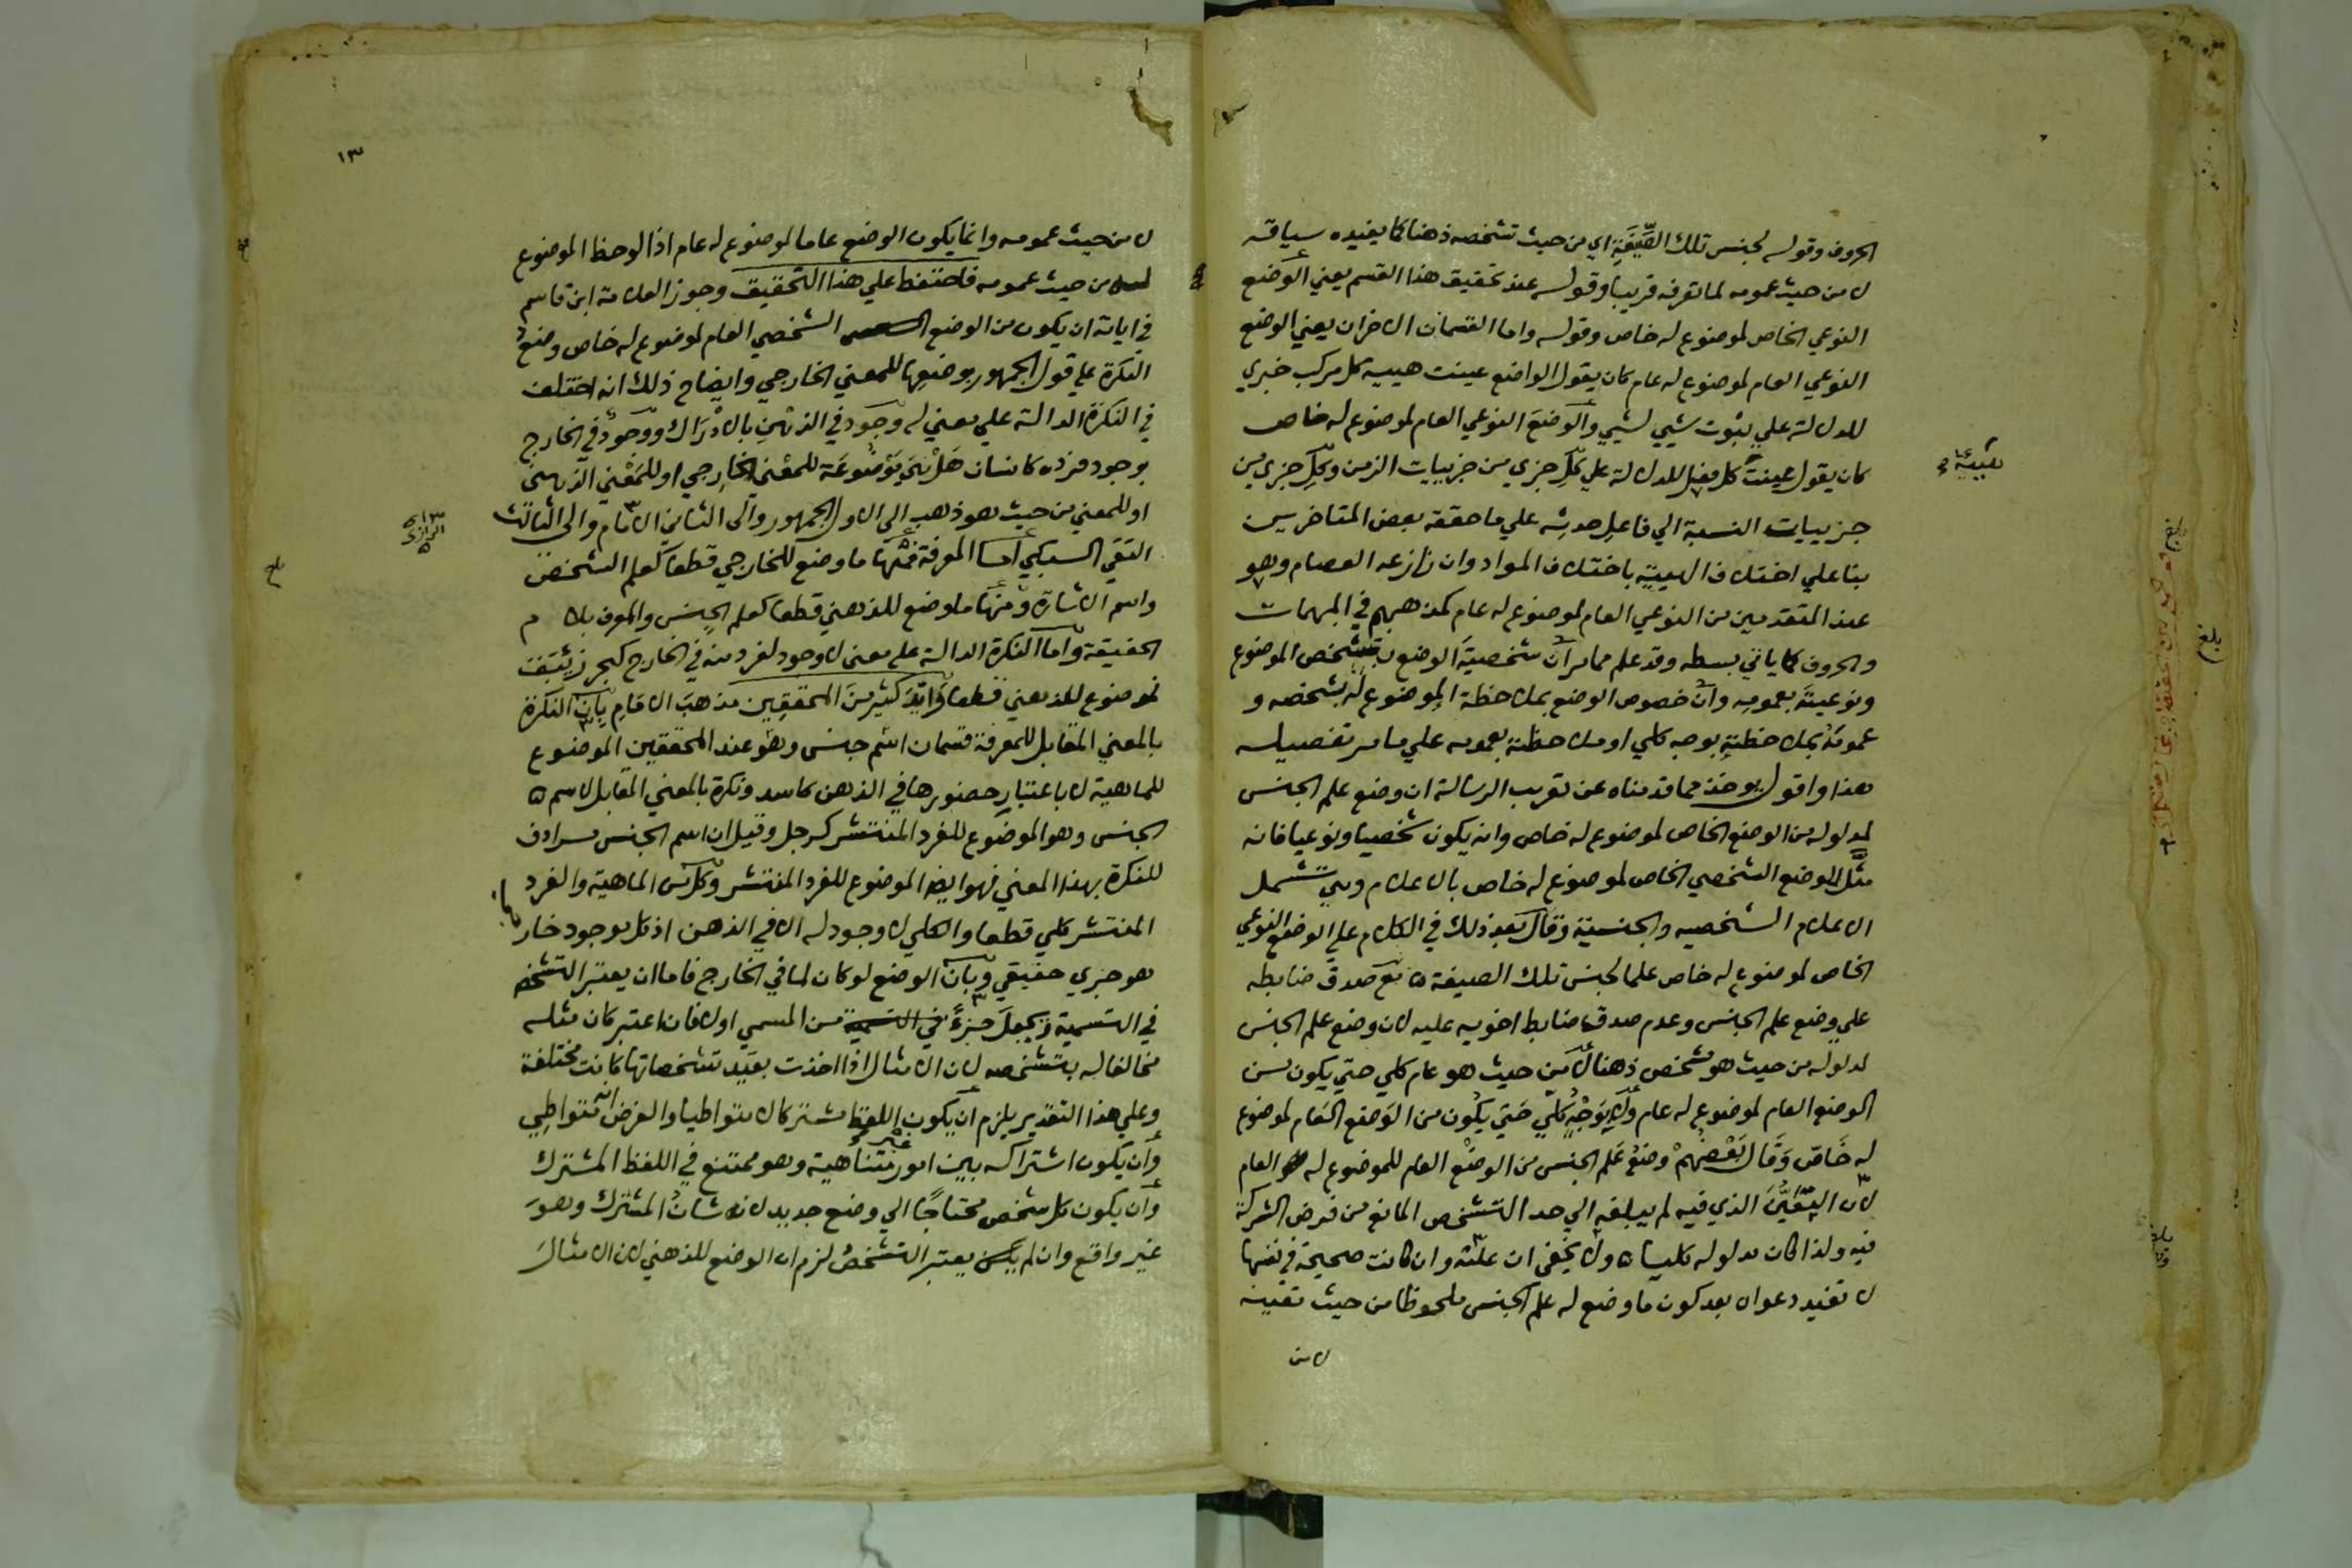 الحروف وقوله لجنس تلك الصِّيغَةِ اي من حيث تشخصه ذهنا كما يفيده سياقه
لا من حيث عمومه لما تعرفه قريبا وقوله عند تحقيق هذا القسم يعني الوضع
النوعي الخاص لموضوع له خاص وقوله واما القسمان الاخران يعني الوضع
النوعي العام لموضوع له عام كان يقول الواضع عينت هيية كل مركب خبري
للدلالة علي ثبوت شيي لشيي والوضعَ النوعي العام لموضوع له خاص
كان يقول عينت كل فعل للدلالة علي كلِ جزي من جزييات الزمن وكلِ جزي من
جزييات النسبة الي فاعلِ حدثِه علي ما حققه بعض المتاخرين
بنا علي اختلاف الهيية باختلاف المواد وان نازعه العصام وهو
عند المتقدمين من النوعي العام لموضوع له عام كمذهبهم في المبهمات
والحروف كما ياتي بسطه وقد علم مما مر أن شخصيةَ الوضع بتشخص الموضوع
ونوعيتَه بعمومِه وأنَّ خصوص الوضع بملاحظة الموضوع له بشخصه و
عمومَهُ بملاحظتِهِ بوجه كلي او ملاحظته بعمومه علي ما مر تفصيله
هذا واقول يوخذ مما قدمناه عن تقريب الرسالة ان وضع علم الجنس
لمدلوله من الوضع الخاص لموضوع له خاص وانه يكون شخصيا ونوعيا فانه
مثَّل للوضع الشخصي الخاص لموضوع له خاص بالاعلام وهي تشمل
الاعلام الشخصيه والجنسيّة وقال بعد ذلك في الكلام علي الوضع النوعي
الخاص لموضوع له خاص علما لجنس تلك الصيغة ه مع صدق ضابطه
علي وضع علم الجنس وعدم صدق ضابط اخويه عليه لان وضع علم الجنس
لمدلوله من حيث هو مشخص ذهنا لا من حيث هو عام كلي حتي يكون من
الوضع العام لموضوع له عام ولا بِوَجْهٍ كلّيٍ حَتي يكُون من الوَضع العَام لموضوع
له خَاصّ وَقَالَ بَعْضهمْ وضع عَلم الجنس من الوضْع العام للموضوع له العام
لان التعَيُّنَ الذي فيه لم يبلغ به الي حد التشخص المانع من فرض الشركة
فيه ولذا كان مدلوله كليا ه ولا يخفي ان علته وان كانت صحيحة في نفسها
لا تفيد دعواه بعد كون ما وضع له علم الجنس ملحوظا من حيث تعينه
لا من
١٣
لا من حيث عمومه وانما يكون الوضع عاما لموضوع له عام اذا لوحظ الموضوع
له من حيث عمومه فاحتفظ علي هذا التحقيق وجوز العلامة ابن قاسم
في اياته ان يكون من الوضع الشخصي العام لموضوع له خاص وضعُ
النكرة علي قول الجمهور بوضعها للمعني الخارجي وايضاح ذلك انه اختلف
في النكرة الدالة علي معني له وجود في الذهْنِ بالادْرَاك ووجودٌ في الخارج
بوجود فرده كانسان هَلْ هيَ مَوْضُوعَة للمعْني الخارجي او للمَعْني الذهني
او للمعني من حيث هو ذهب الي الاول الجمهور والي الثاني الامام والي الثالث
التقي السبكي أما المعرفة فمنها ما وضع للخارجي قطعا كعلم الشخص
واسم الاشارة ومنها ما وضع للذهني قطعا كعلم الجنس والمعرف بلام
الحقيقة واما النكرة الدالة علي معني لا وجود لفرد منه في الخارج كبحر زيبق
فموضوع للذهني قطعا وَأيّدَ كثيرٌ منَ المحققِين مذهبَ الامَامِ بِأن النكرة
بالمعني المقابل للمعرفة قسمان اسْم جنس وهْو عند المحققين الموضوع
للماهية لا باعتبار حضورها في الذهن كاسد ونكرة بالمعني المقابل لاسم
الجنس وهو الموضوع للفرد المنتشر كرجل وقيل ان اسم الجنس مرادف
للنكرة بهذا المعني فهو ايضا الموضوع للفرد المنتشر وكل من الماهية والفرد
المنتشر كلي قطعا والكلي لا وجود له الا في الذهن اذ كل موجود خار
هو جزي حقيقي وبأن الوضع لو كان لما في الخارج فاما ان يعتبر التشخص
في التسمية ويُجعلَ جزءً من المسمي او لا فان اعتبر كان مثله
مخالفا له بتشخصه لان الامثال اذا اخذت بقيد تشخصاتها كانت مختلفة
وعلي هذا التقدير يلزم أن يكون اللفظ مشتركا لا متواطيا والفرض انه متواطِي
وأن يكون اشتراكه بين امور غير متناهية وهو ممتنع في اللفظ المشترك
وأن يكون كل شخص محتاجًا الي وضع جديد لانه شان المشترك وهوَ
غير واقع وان لم يعتبر التشخصُ لزم ان الوضع للذهني لان الامثالَ